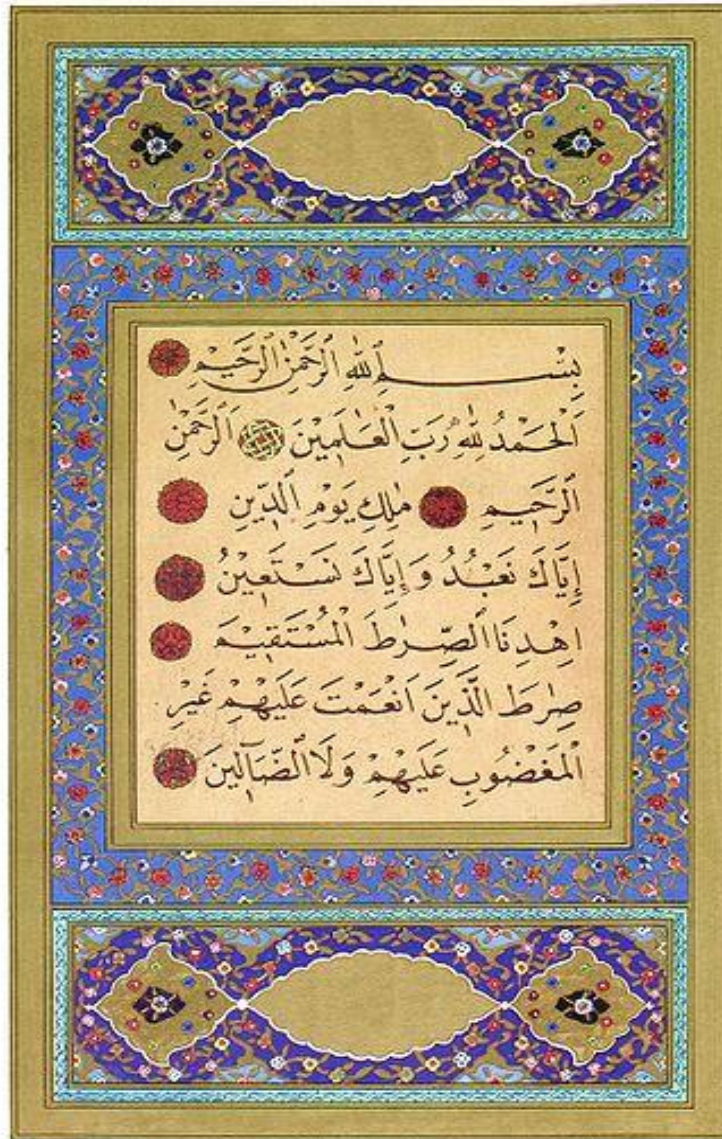 بِسْمِ ٱللّٰهِ ٱلرَّحْمٰنِ ٱلرَّحِيمِ
اَلْحَمْدُ لِلّٰهِ رَبِّ الْعَالَمِينَ اَلرَّحْمٰنِ
الرَّحِيمِ مٰلِكِ يَوْمِ ٱلدِّينِ
إِيَّاكَ نَعْبُدُ وَإِيَّاكَ نَسْتَعِينُ
اِهْدِنَا ٱلصِّرٰطَ الْمُسْتَقِيمَ
صِرٰطَ الَّذِينَ اَنْعَمْتَ عَلَيْهِمْ غَيْرِ
الْمَغْضُوبِ عَلَيْهِمْ وَلَا ٱلضَّآلِّينَ